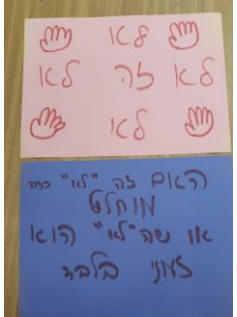 לא
לא זה לא
לא
האם זה "לא" כזה
מוחלט
או שה"לא" הוא
זמני בלבד